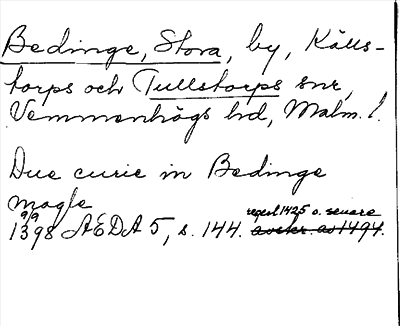 Bedinge, Stora, by, Källs-
torps och Tullstorps snr,
Vemmenhögs hd, Malm. l.
Due curie in Bedinge
magle
9/9
1398 AEDA 5, s. 144. regest 1425 o. senare
avskr. av 1494.